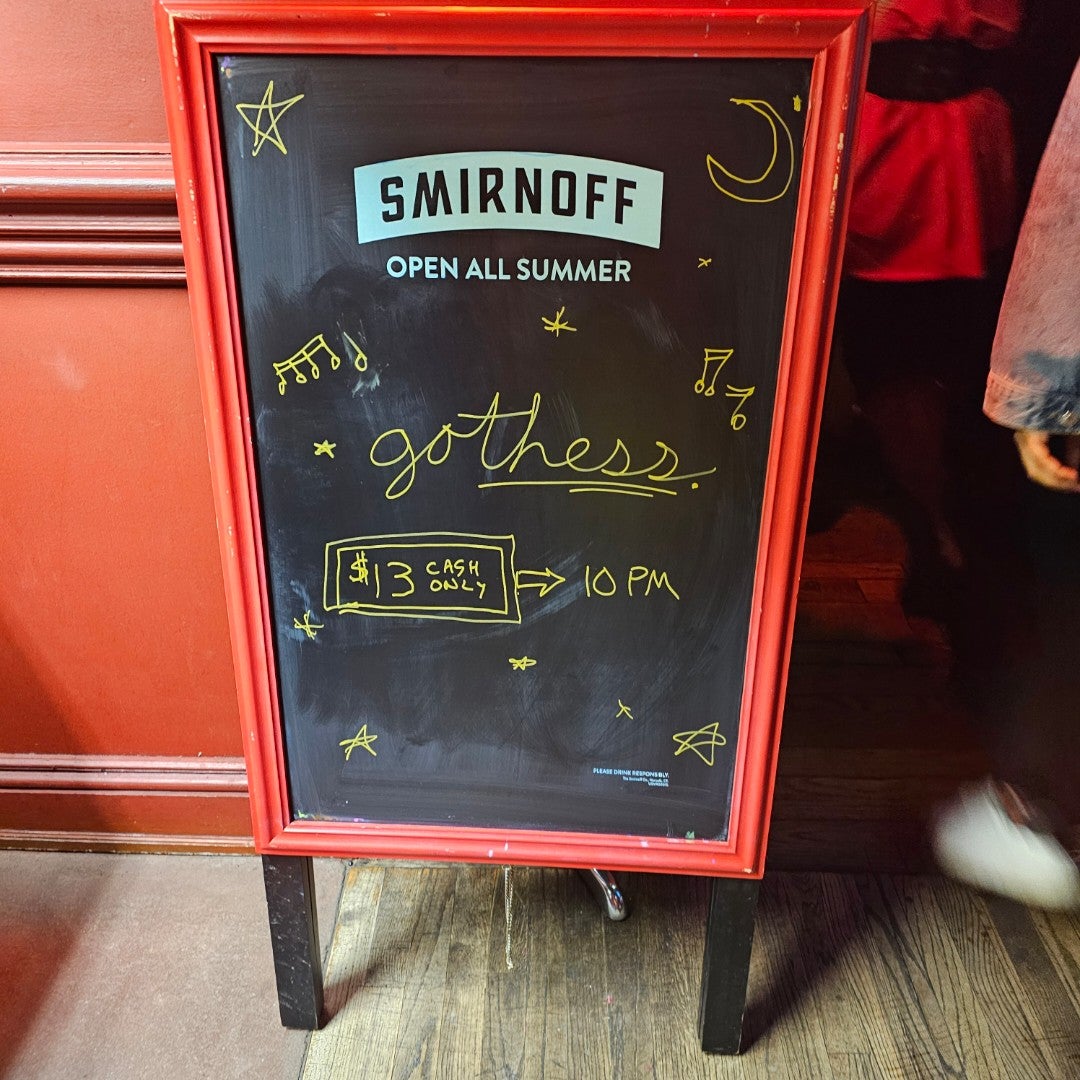 SMIRNOFF
OPEN ALL SUMMER
gothess.
$13 CASH ONLY → 10 PM
PLEASE DRINK RESPONSIBLY.